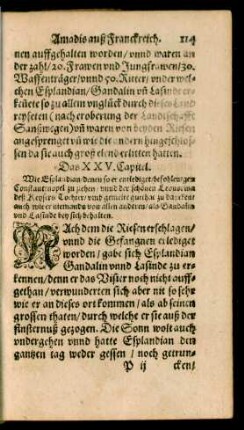 Amadis auß Franckreich. 214
nen auffgehalten worden / vnnd waren an
der zahl / 20. Frawen vnd Jungfrawen / 30.
Waffenträger / vnnd 50. Ritter / vnder wel-
chen Esplandian / Gandalin vñ Lasinde er-
kente so zu allem vnglück durch dieses Land
reyseten (nach eroberung der Landtschafft
Sanßuegen) vñ waren von beyden Riesen
angesprenget vñ wie die andern hingeschlos-
sen da sie auch groß elend erlitten hatten.
Das XXV. Capitel.
Wie Esplandian denen so er entlediget befohlen gen
Constantinopel zu ziehen / vnnd der schönen Leonorina
deß Keysers Tochter
vnd Lasinde bey sich behalten.
NAch dem die Riesen erschlagen /
vnnd die Gefangnen erlediget
worden / gabe sich Esplandian
Gandalin vnnd Lasinde zu er-
kennen / denn er das Visier noch nicht auff-
gethan / verwunderten sich aber nit so sehr
wie er an dieses ort kommen / als ab seinen
grossen thaten / durch welche er sie auß der
finsternuß gezogen. Die Sonn wolt auch
vndergehen vnnd hatte Esplandian den
gantzen tag weder gessen / noch getrun-
P ij cken /